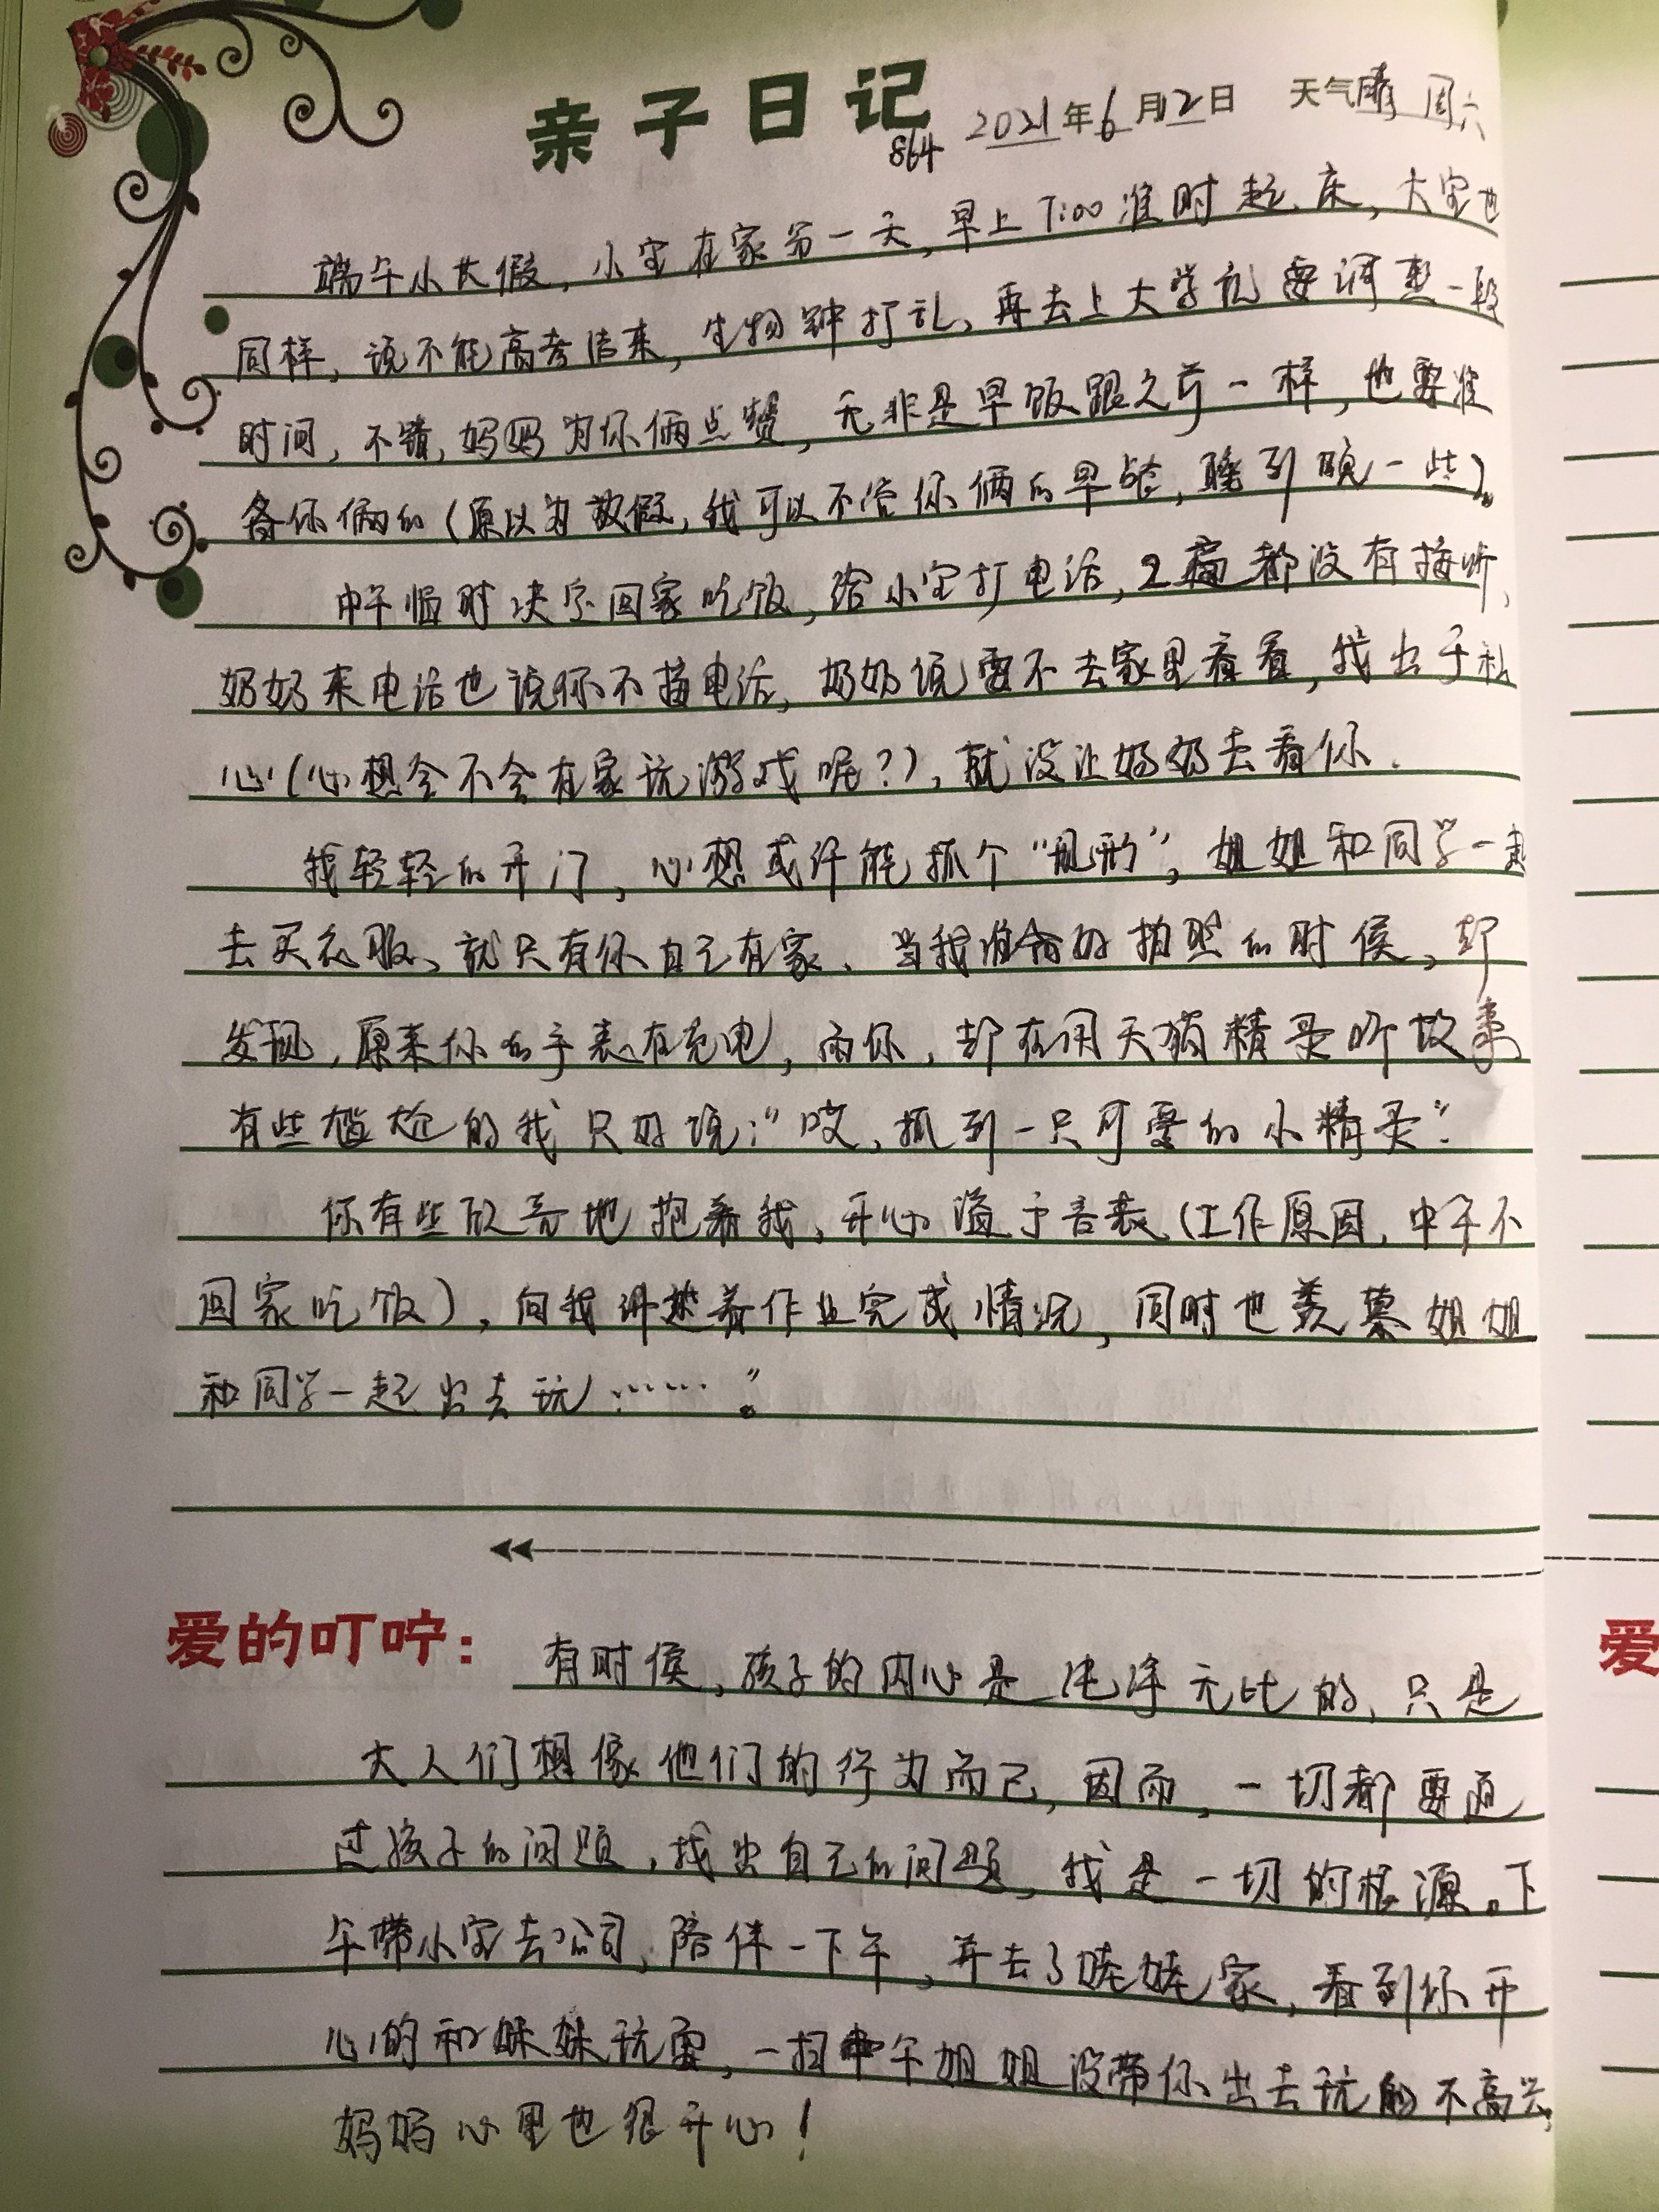 亲子日记
864 2021年6月12日 天气晴 周六
端午小长假，小宝在家第一天，早上7:00准时起床，大宝也
同样，说不能高考结束，生物钟打乱，再去上大学就要调整一段
时间，不错，妈妈为你俩点赞，无非是早饭跟之前一样，也要准
备你俩的（原以为放假，我可以不管你俩的早餐，睡到晚一些）。
中午临时决定回家吃饭，给小宝打电话，2遍都没有接听，
奶奶来电话也说你不接电话，奶奶说要不去家里看看，我出于私
心（心想会不会在家玩游戏呢？），就没让奶奶去看你.
我轻轻的开门，心想或许能抓个“现形”，姐姐和同学一起
去买衣服、就只有你自己在家、当我准备好拍照的时候，却
发现，原来你的手表在充电，而你，却在用天猫精灵听故事
有些尴尬的我只好说：“哎，抓到一只可爱的小精灵”.
你有些放亮地抱着我，开心溢于言表（工作原因，中午不
回家吃饭），向我讲述着作业完成情况，同时也羡慕姐姐
和同学一起出去玩……。”
爱的叮咛：有时候，孩子的内心是纯净无比的、只是
大人们想像他们的行为而已，因而，一切都要透
过孩子的问题，找出自己的问题，我是一切的根源。下
午带小宝去公司，陪伴一下午，并去了娃娃家，看到你开
心的和妹妹玩耍，一扫中午姐姐没带你出去玩的不高兴，
妈妈心里也很开心！
爱